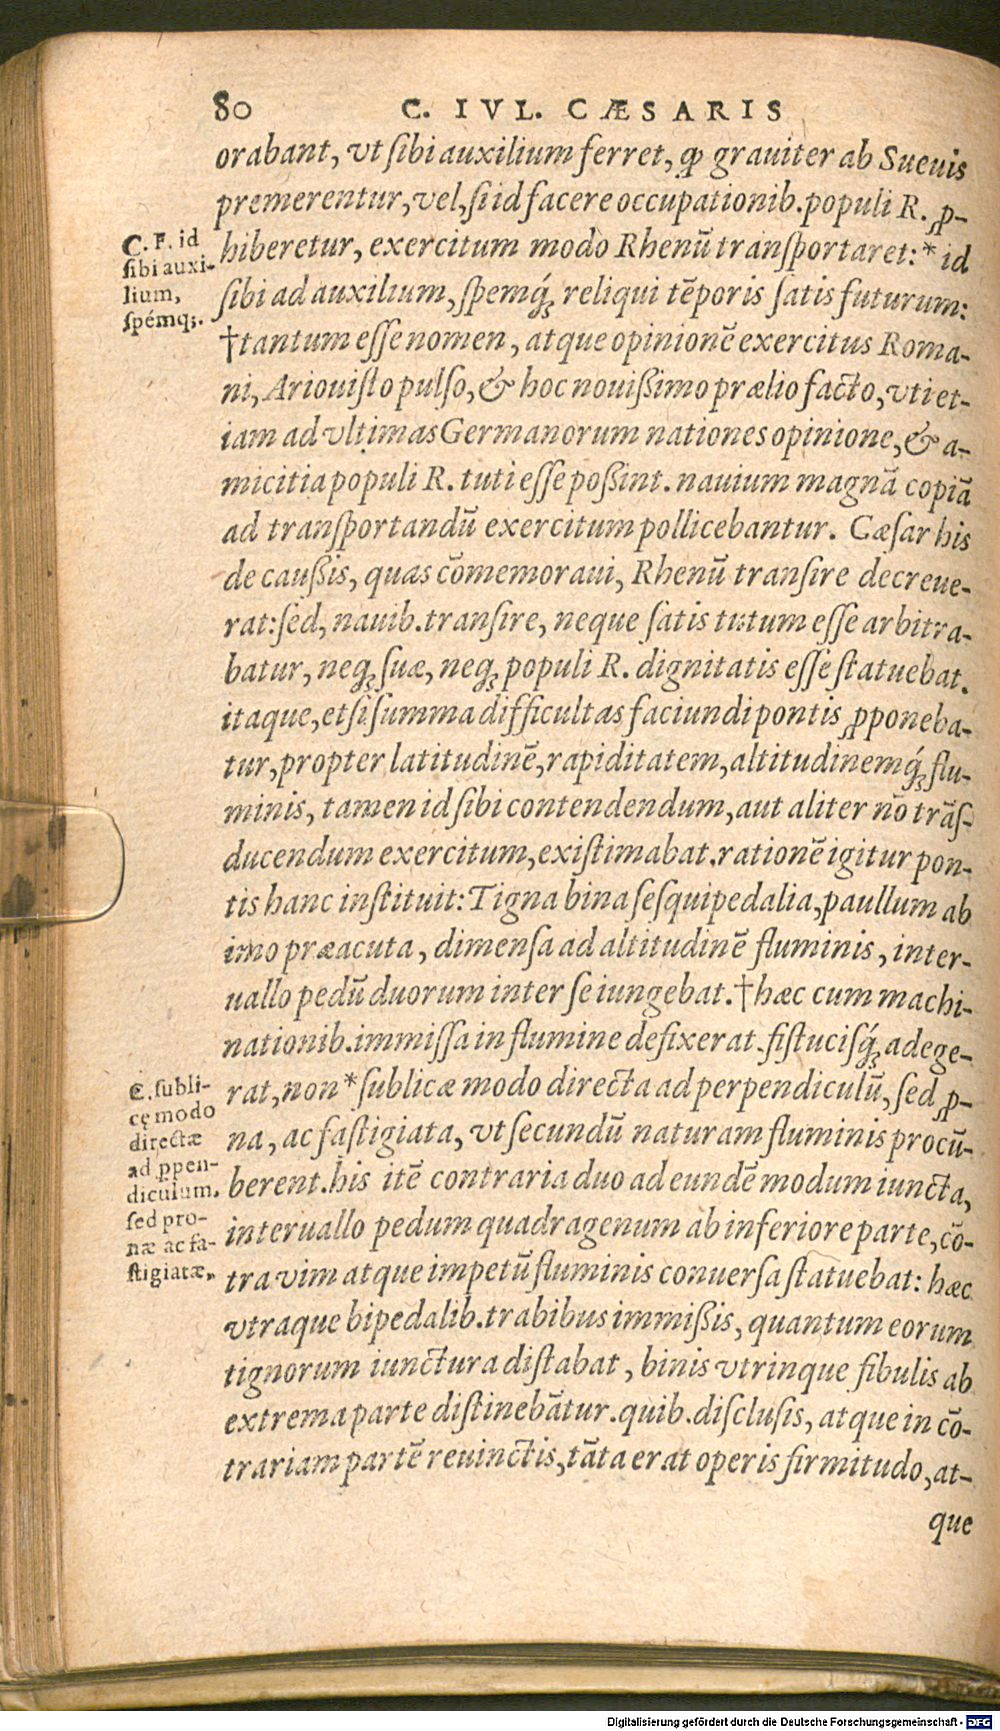 80 C. IVL. CÆSARIS
orabant, vt ſibi auxilium ferret, ꝙ grauiter ab Sueuis
premerentur, vel, ſi id facere occupationib. populi R. ꝓ-
hiberetur, exercitum modo Rhenū tranſportaret: * id
ſibi ad auxilium, ſpemq́; reliqui tēporis ſatis futurum:
†tantum eſſe nomen, atque opinionē exercitus Roma-
ni, Ariouiſto pulſo, & hoc nouißimo prælio facto, vti et-
iam ad vltimas Germanorum nationes opinione, & a-
micitia populi R. tuti eſſe poßint. nauium magnā copiā
ad tranſportandū exercitum pollicebantur. Cæſar his
de caußis, quas cōmemoraui, Rhenū tranſire decreue-
rat: ſed, nauib. tranſire, neque ſatis tutum eſſe arbitra-
batur, neq; ſuæ, neq; populi R. dignitatis eſſe ſtatuebat.
itaque, etſi ſumma difficultas faciundi pontis ꝓponeba-
tur, propter latitudinē, rapiditatem, altitudinemq́; flu-
minis, tamen id ſibi contendendum, aut aliter nō trāſ-
ducendum exercitum, exiſtimabat. rationē igitur pon-
tis hanc inſtituit: Tigna bina ſeſquipedalia, paullum ab
imo præacuta, dimenſa ad altitudinē fluminis, inter-
uallo pedū duorum inter ſe iungebat. †hæc cum machi-
nationib. immiſſa in flumine defixerat. fiſtuciſq́; adege-
rat, non * ſublicæ modo directa ad perpendiculū, ſed ꝓ-
na, ac faſtigiata, vt ſecundū naturam fluminis procū-
berent. his itē contraria duo ad eundē modum iuncta,
interuallo pedum quadragenum ab inferiore parte, cō-
tra vim atque impetū fluminis conuerſa ſtatuebat: hæc
vtraque bipedalib. trabibus immißis, quantum eorum
tignorum iunctura diſtabat, binis vtrinque fibulis ab
extrema parte diſtinebātur. quib. diſcluſis, atque in cō-
trariam partē reuinctis, tāta erat operis firmitudo, at-
que
C. F. id
ſibi auxi-
lium,
ſpémq;.
C. ſubli-
cę modo
directæ
ad ꝑpen-
diculum.
ſed pro-
næ ac fa-
ſtigiatæ.
Digitalisierung gefördert durch die Deutsche Forschungsgemeinschaft - DFG